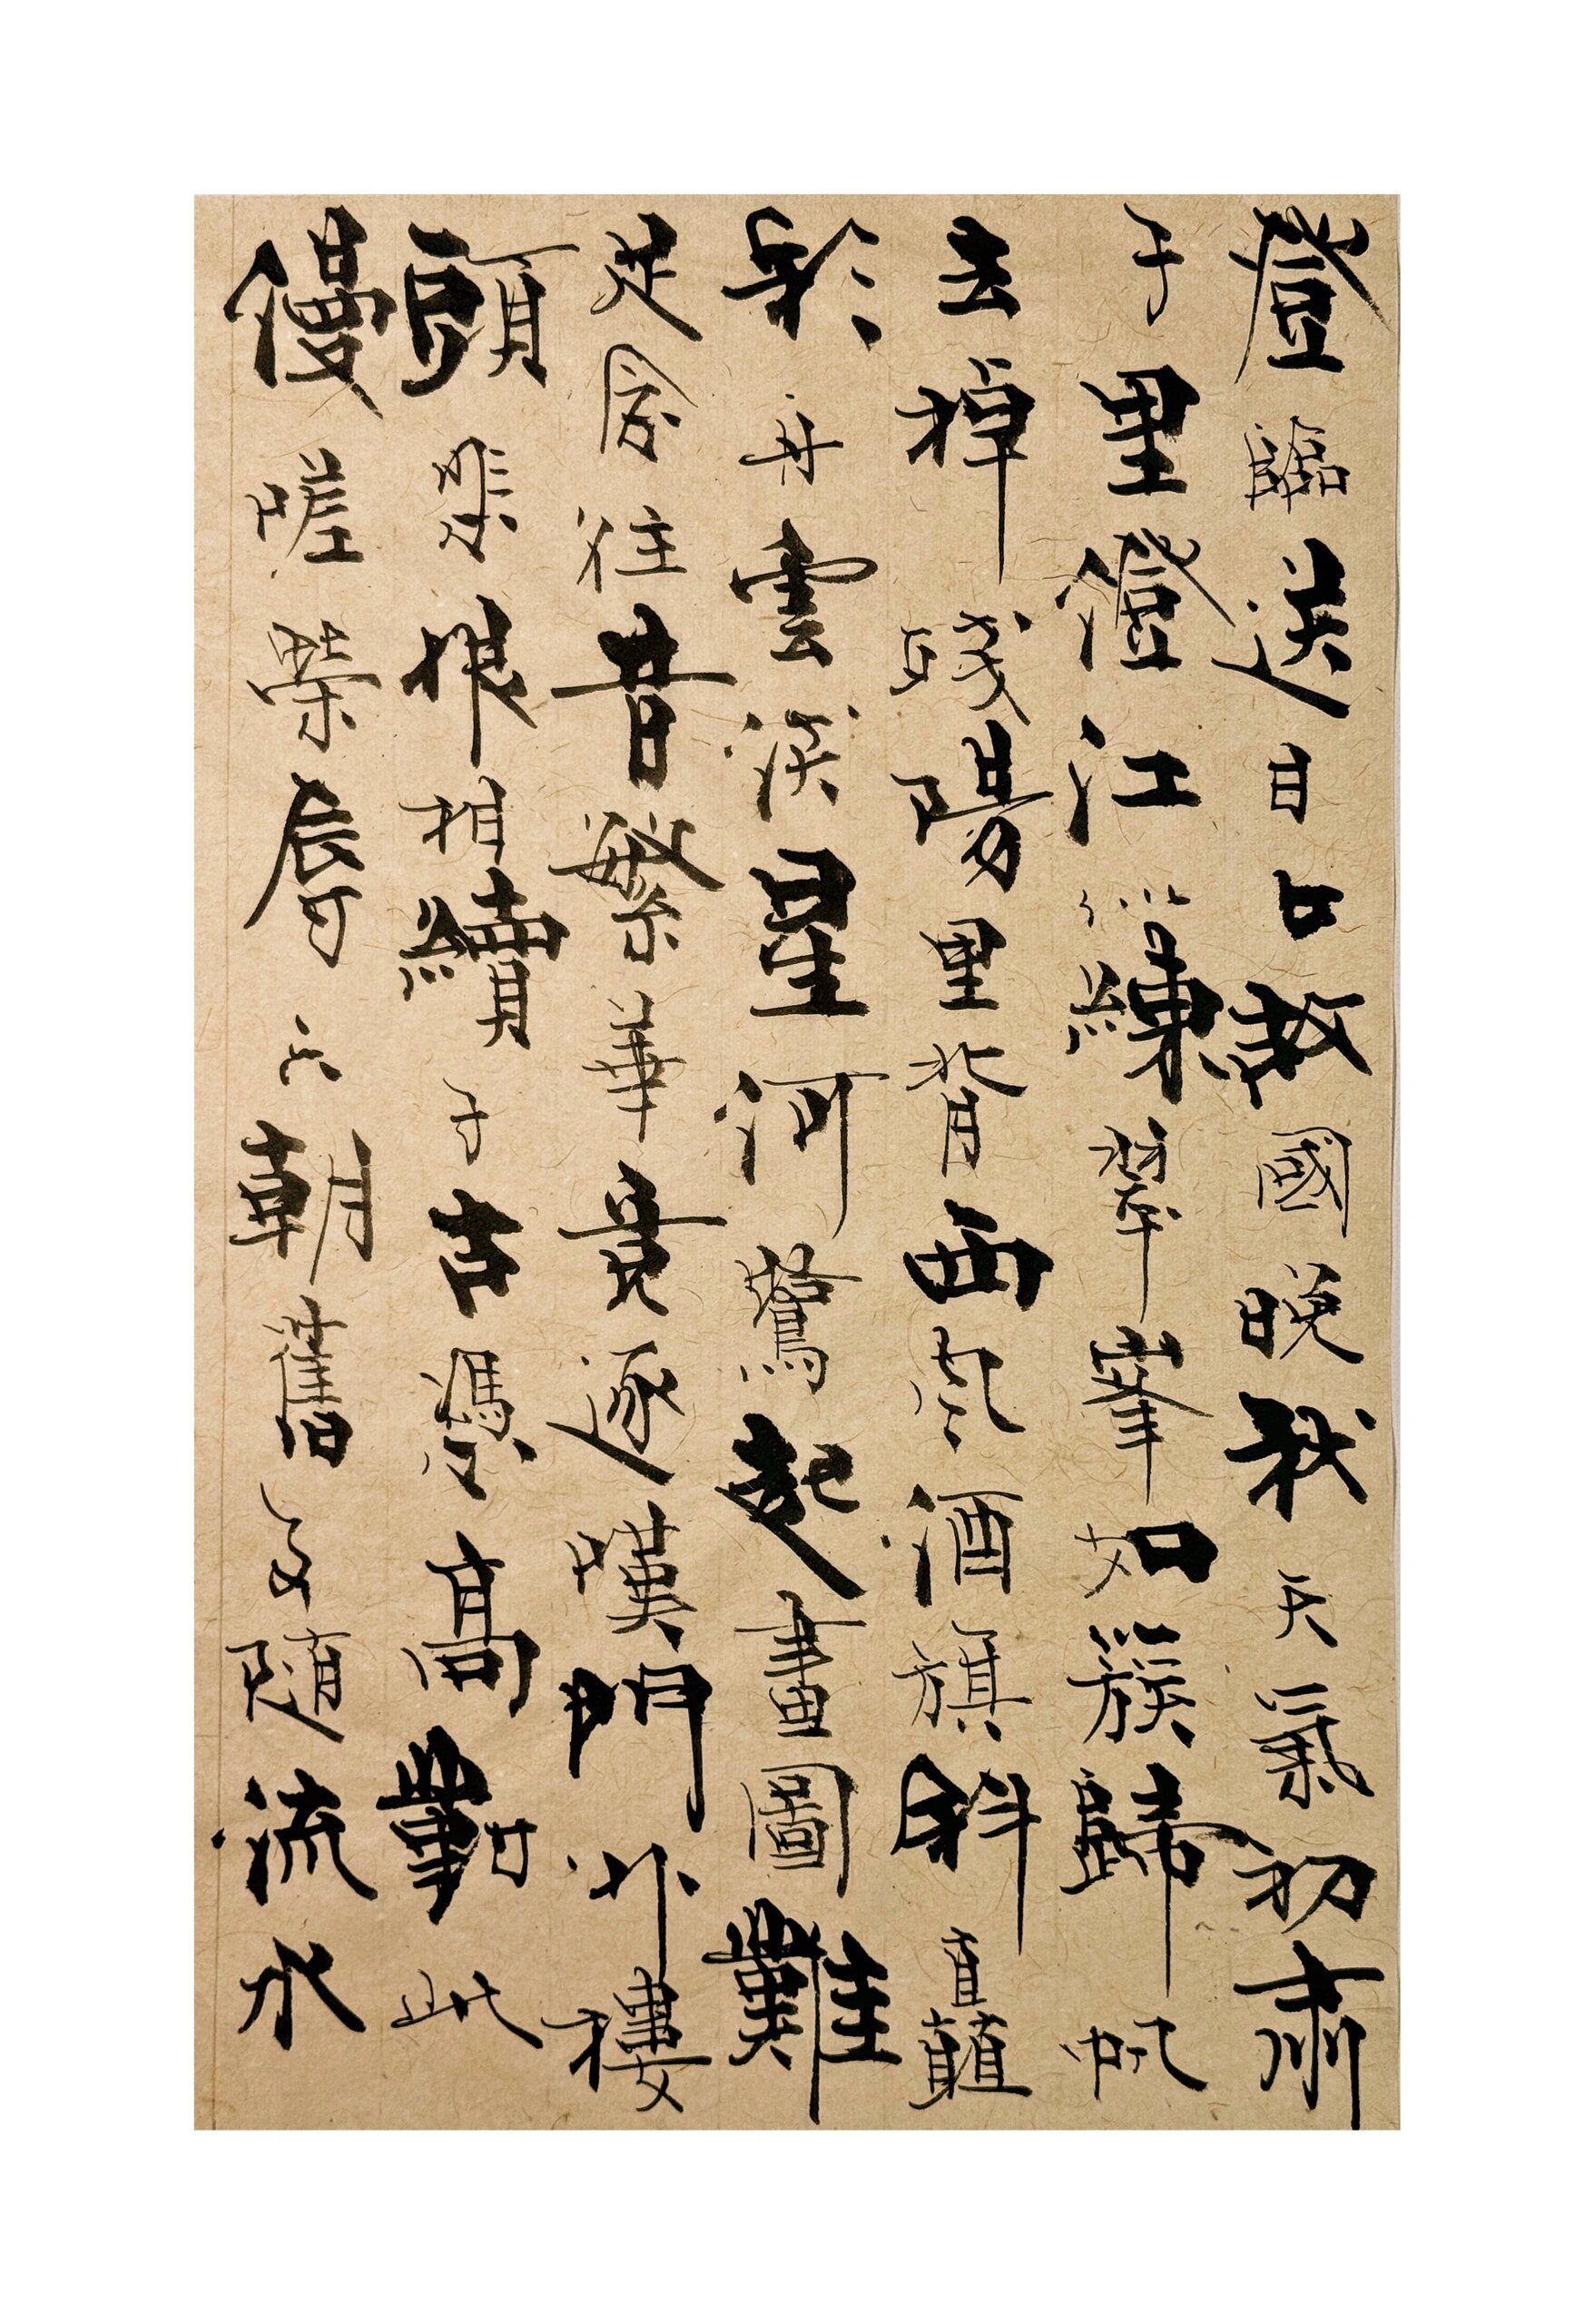 登臨送目正故國晚秋天氣初肅
千里澄江似練翠峯如簇歸帆
去棹殘陽里背西風酒旗斜矗
彩舟雲淡星河鷺起畫圖難
足念往昔繁華競逐嘆門外樓
頭悲恨相續千古憑高對此
謾嗟榮辱六朝舊事隨流水